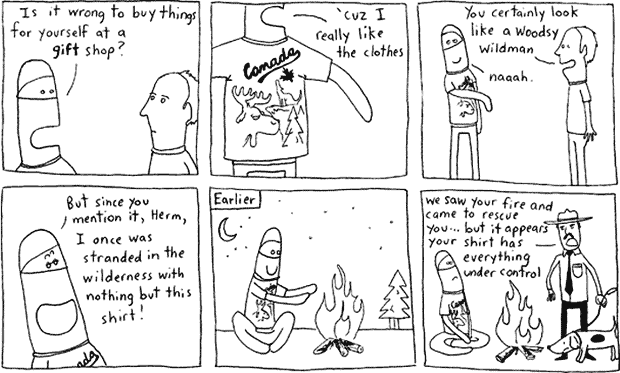 Is it wrong to buy things
for yourself at a
gift shop?
'cuz I
really like
the clothes
Canada
You certainly look
like a woodsy
wildman
naaah.
But since you
mention it, Herm,
I once was
stranded in the
wilderness with
nothing but this
shirt!
nada
Earlier
we saw your fire and
came to rescue
you... but it appears
your shirt has
everything
under control
Can